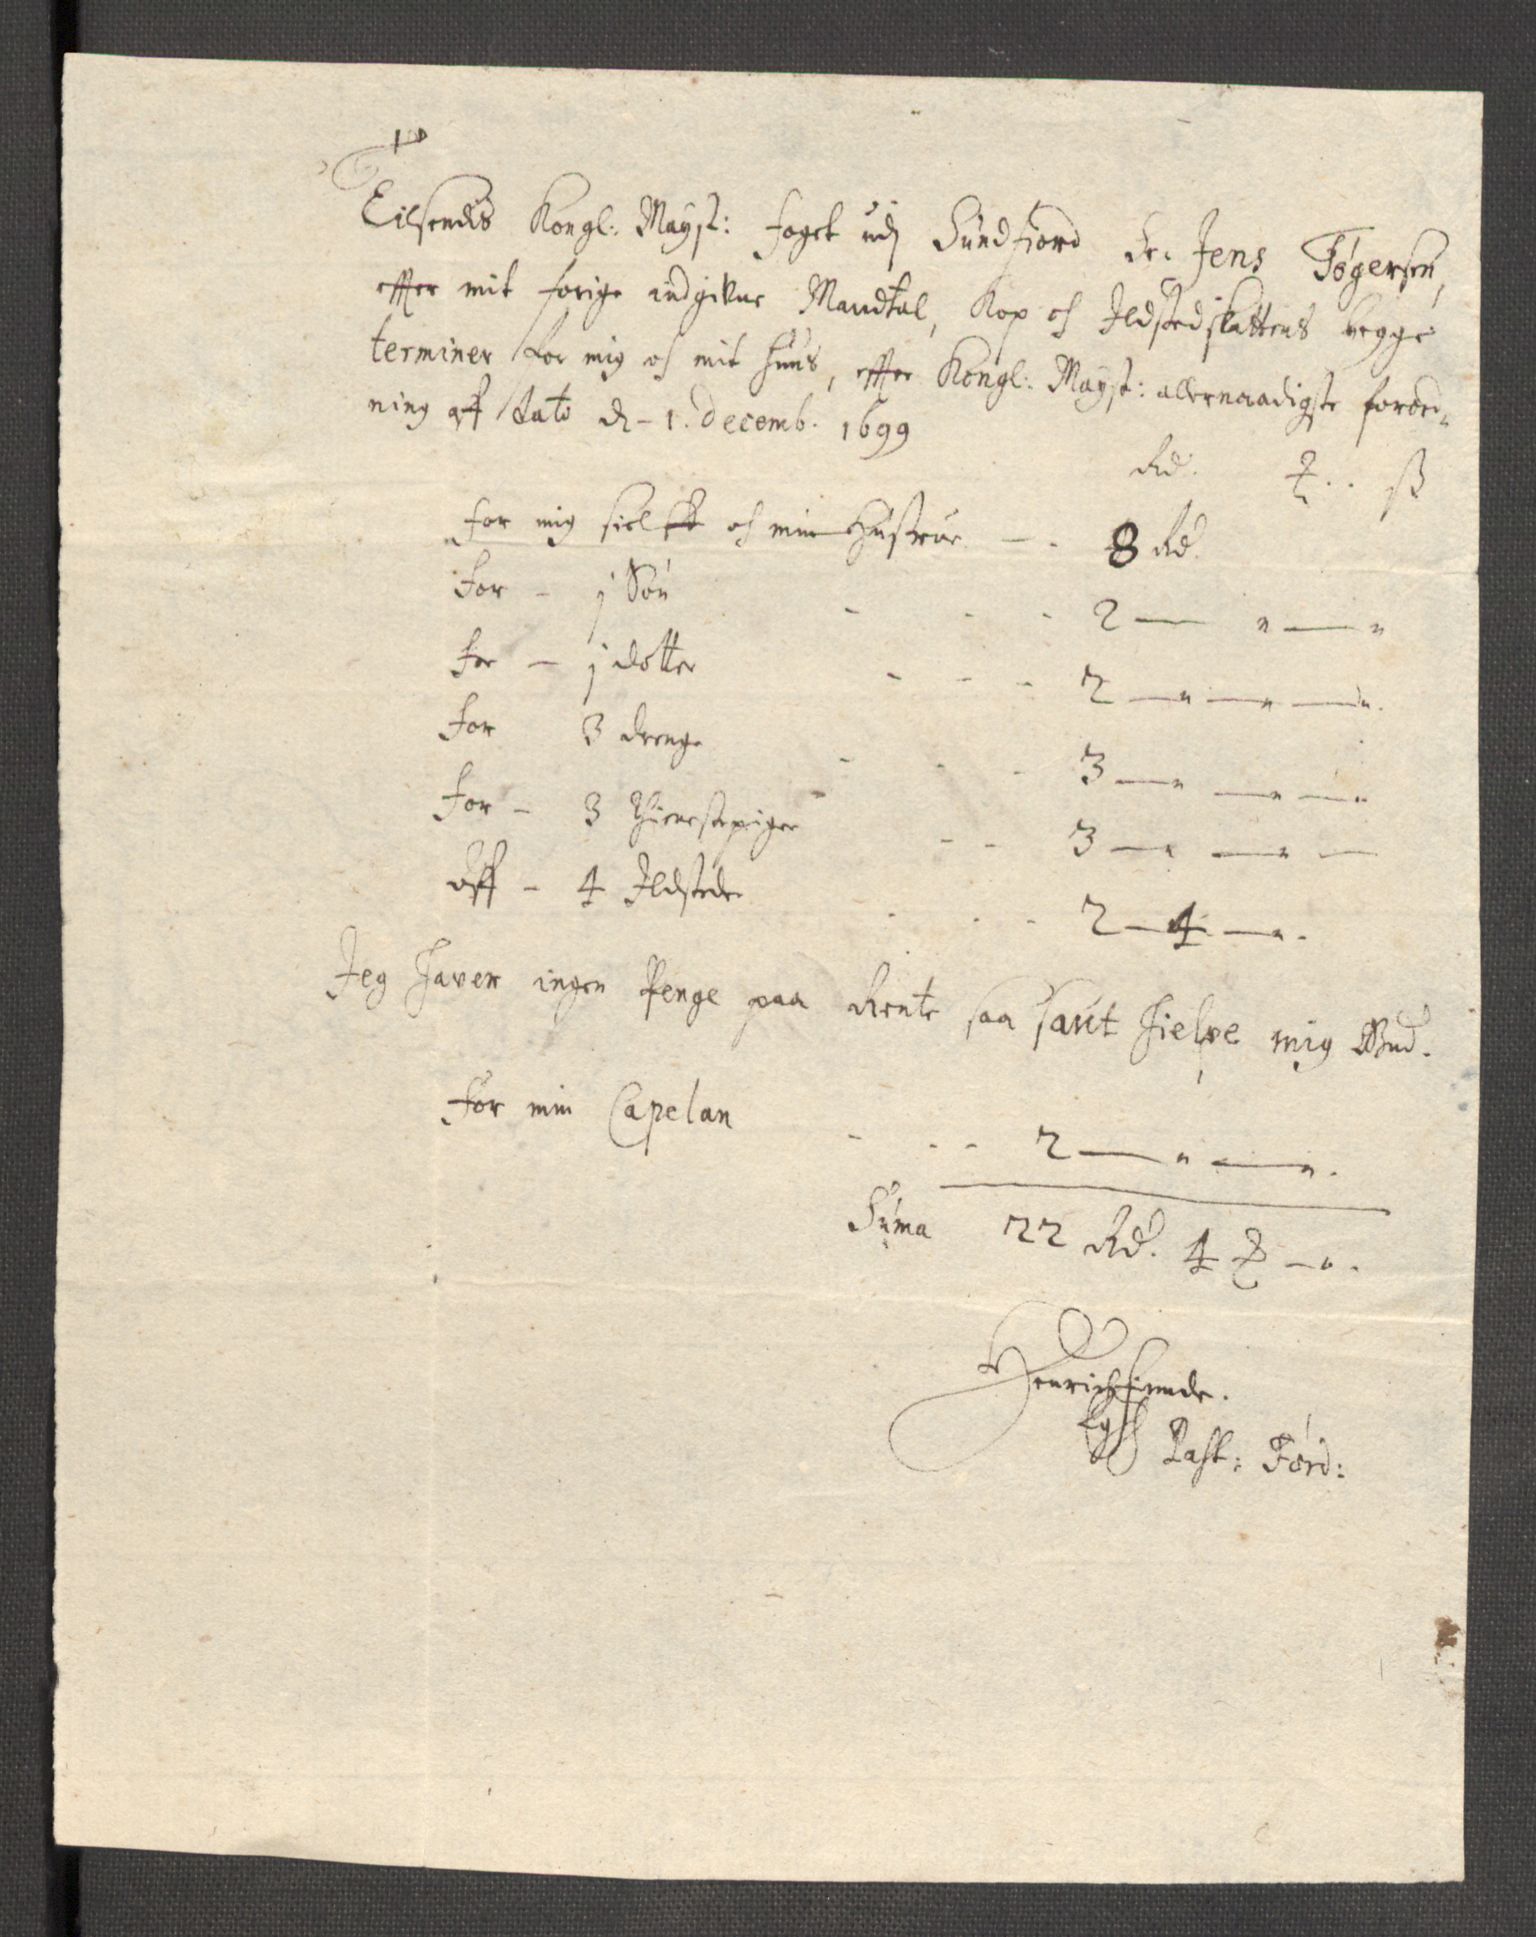 Tilsendis Kongl: Mayst: foget udj Sundfiord Sr. Jens Tøgersen,
effter mit forige andgifne Mandtal, Kop og Ildstedskattens begge
terminer for mig og mit huus, effter Kongl: Mayst: allernaadigste forord-
ning aff dato d- 1. decemb. 1699
Rd. ß
for mig sielff og min Hustrue - - 8 Rd.
for - j Søn - - - 2 — " — "
for - j dotter - - - 2 — " — " — "
for 3 drenge - - - 3 — " — " — "
for - 3 thienestepiger - - - 3 — " — " —
Aff - 4 Ildstede - - - 2 — 4 — " -
Jeg hauer ingen Penge paa Rente saa sant hielpe mig Gud.
For min Capelan - - - 2 — " — ".
Suma 22 Rd. 4 — " .
Henrich Finde.
Past: Førd: